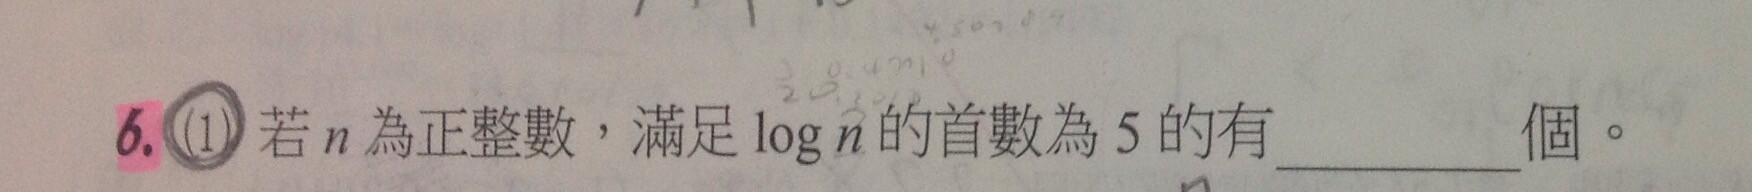 6.(1) 若 n 為正整數，滿足 log n 的首數為 5 的有＿＿＿＿＿個。